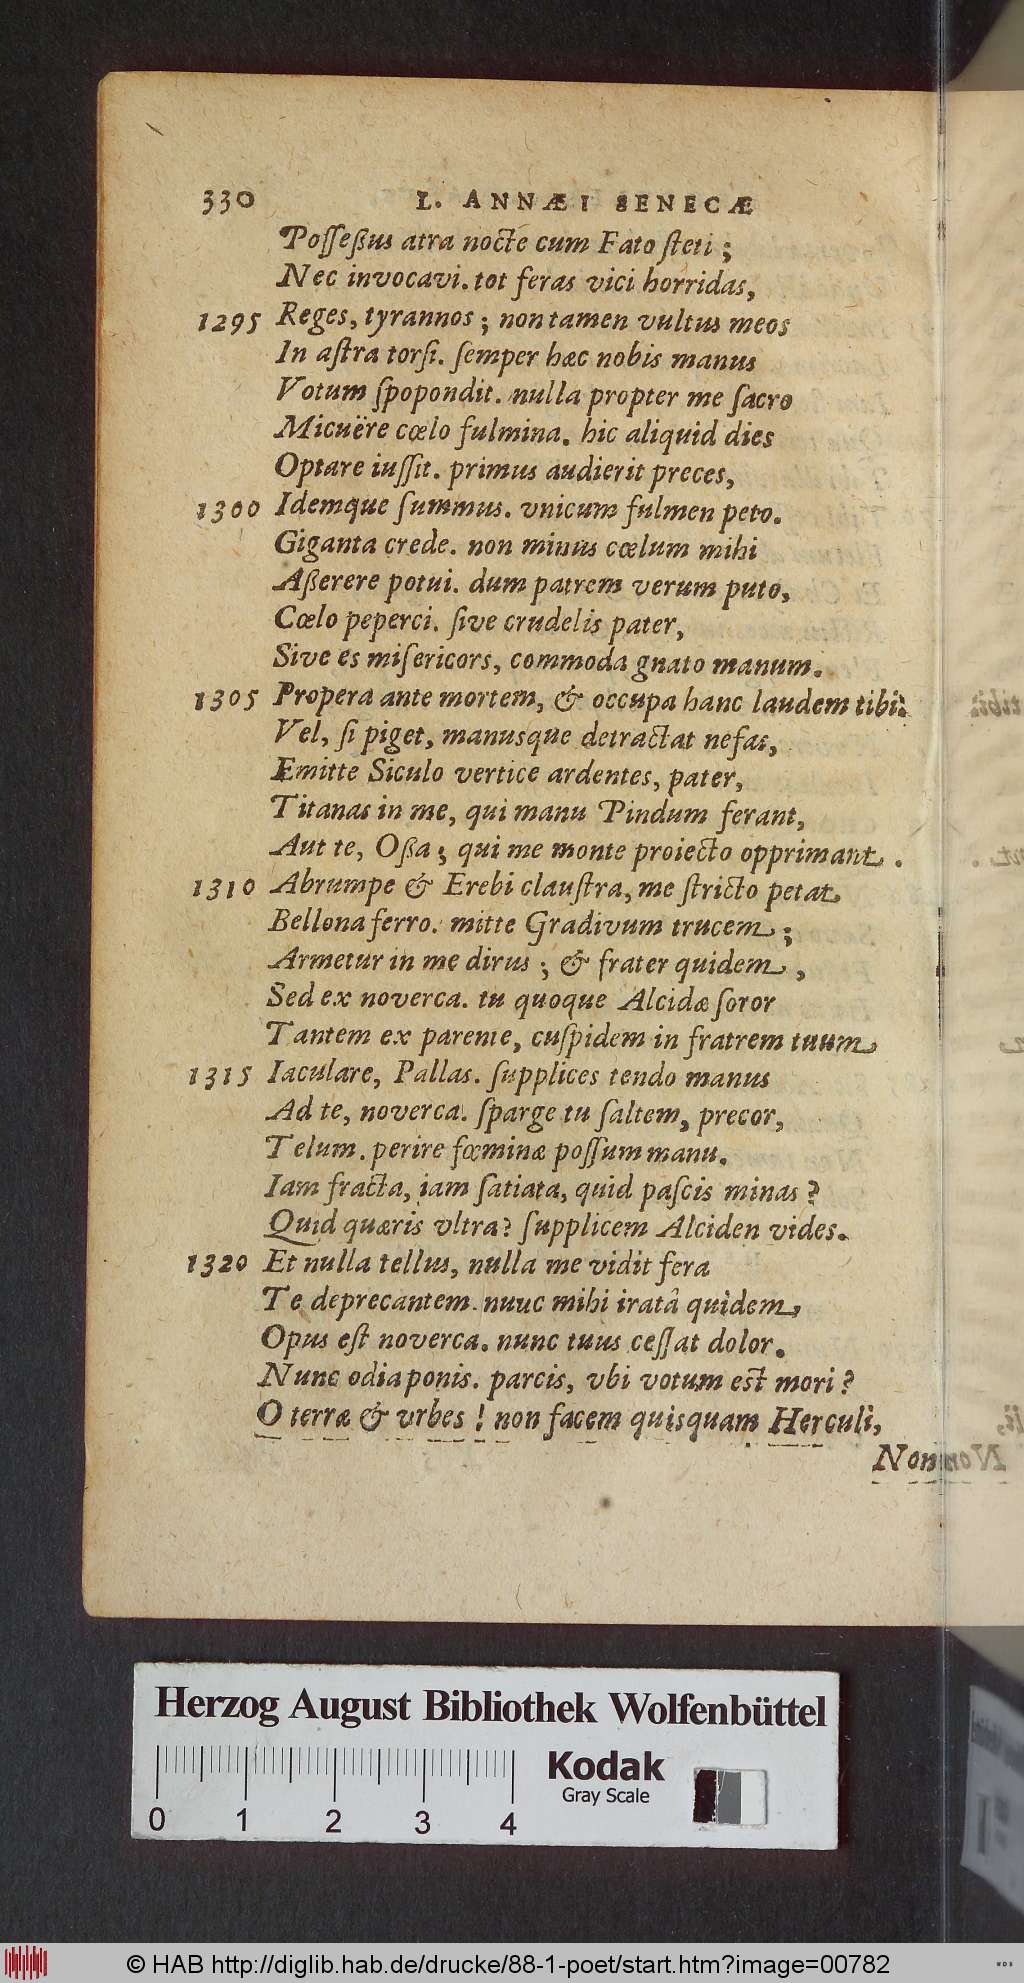 330 L. ANNÆI SENECÆ
Poſſeßus atra nocte cum Fato ſteti;
Nec invocavi. tot feras vici horridas,
1295 Reges, tyrannos; non tamen vultus meos
In aſtra torſi. ſemper hæc nobis manus
Votum ſpopondit. nulla propter me ſacro
Micuëre cœlo fulmina. hic aliquid dies
Optare iuſſit. primus audierit preces,
1300 Idemque ſummus. vnicum fulmen peto.
Giganta crede. non minus cœlum mihi
Aßerere potui. dum patrem verum puto,
Cœlo peperci. ſive crudelis pater,
Sive es miſericors, commoda gnato manum.
1305 Propera ante mortem, & occupa hanc laudem tibi.
Vel, ſi piget, manusque detractat nefas,
Emitte Siculo vertice ardentes, pater,
Titanas in me, qui manu Pindum ferant,
Aut te, Oßa; qui me monte proiecto opprimant.
1310 Abrumpe & Erebi clauſtra, me ſtricto petat
Bellona ferro. mitte Gradivum trucem;
Armetur in me dirus; & frater quidem,
Sed ex noverca. tu quoque Alcidæ ſoror
Tantem ex parente, cuſpidem in fratrem tuum
1315 Iaculare, Pallas. ſupplices tendo manus
Ad te, noverca. ſparge tu ſaltem, precor,
Telum. perire fœminæ poſſum manu.
Iam fracta, iam ſatiata, quid paſcis minas?
Quid quæris vltra? ſupplicem Alciden vides.
1320 Et nulla tellus, nulla me vidit fera
Te deprecantem. nuuc mihi iratâ quidem,
Opus eſt noverca. nunc tuus ceſſat dolor.
Nunc odia ponis. parcis, vbi votum est mori?
O terræ & vrbes! non facem quisquam Herculi,
Non
Herzog August Bibliothek Wolfenbüttel
Kodak
Gray Scale
0 1 2 3 4
© HAB http://diglib.hab.de/drucke/88-1-poet/start.htm?image=00782